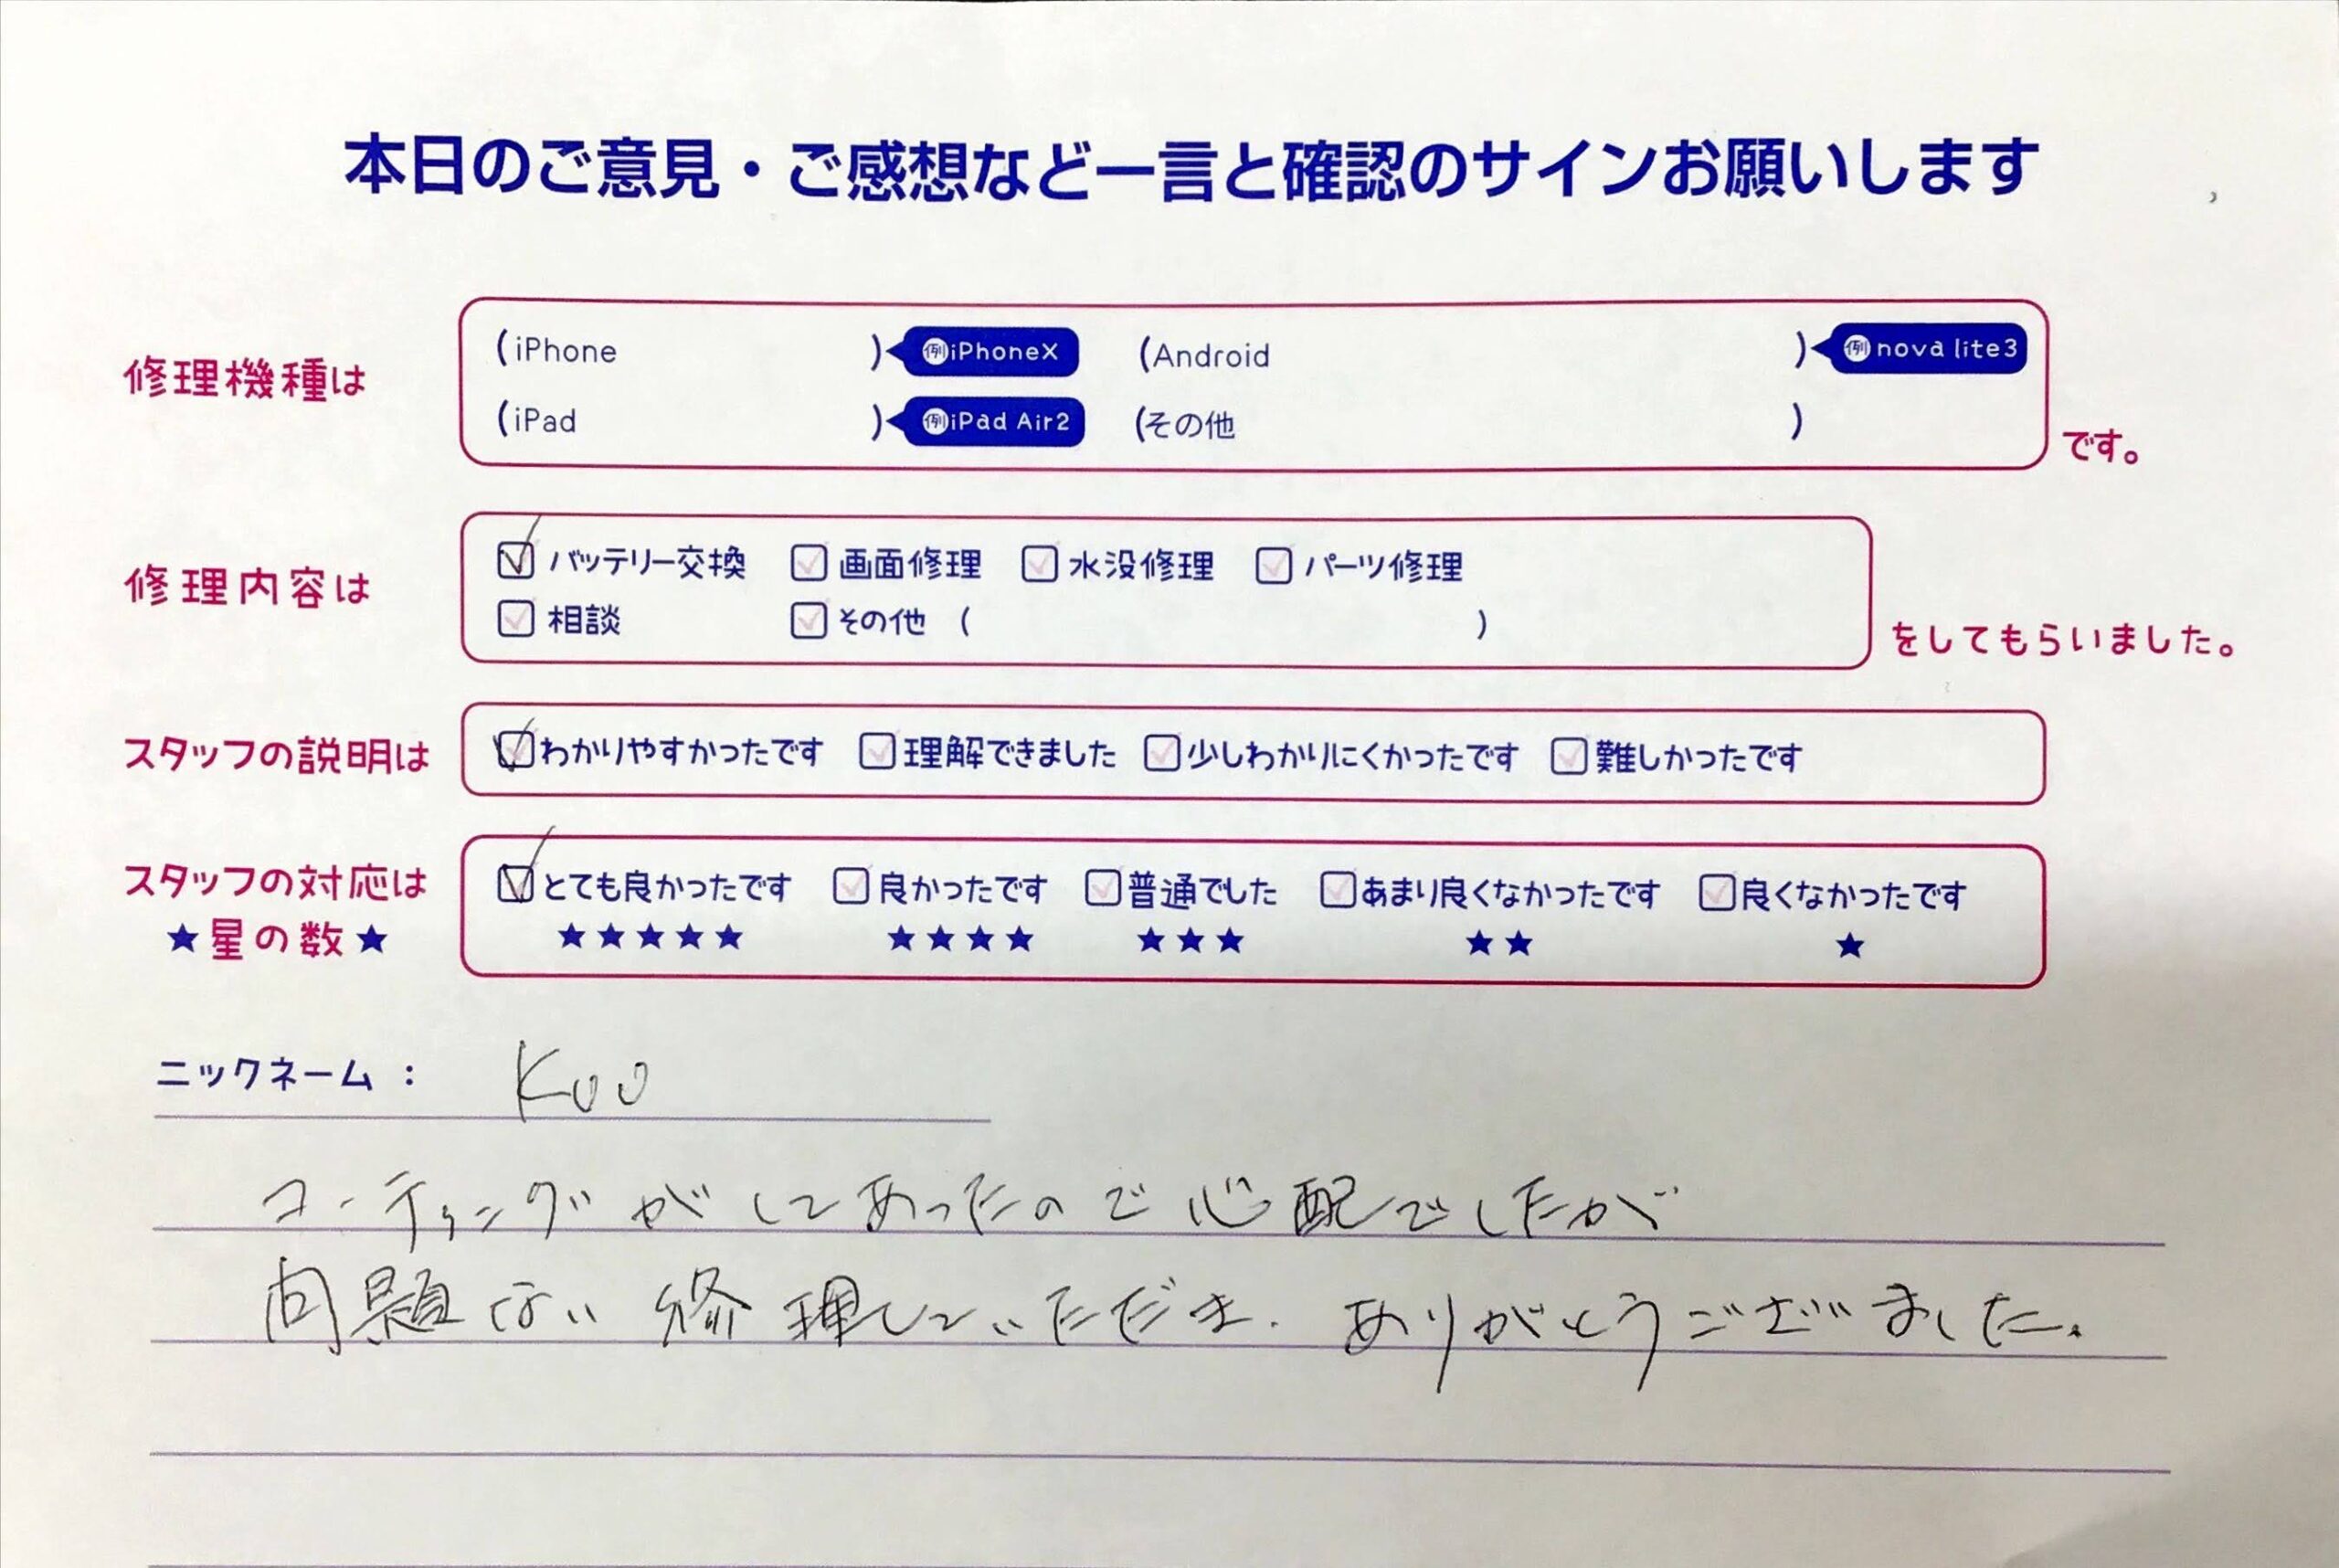 本日のご意見・ご感想など一言と確認のサインお願いします
修理機種は
(iPhone ) 例iPhoneX (Android ) 例nova lite3
(iPad ) 例iPad Air2 (その他 )
です。
修理内容は
バッテリー交換 画面修理 水没修理 パーツ修理
相談 その他 ( )
をしてもらいました。
スタッフの説明は
わかりやすかったです 理解できました 少しわかりにくかったです 難しかったです
スタッフの対応は
★星の数★
とても良かったです 良かったです 普通でした あまり良くなかったです 良くなかったです
★★★★★ ★★★★ ★★★ ★★ ★
ニックネーム： Koo
コーティングがしてあったので心配でしたが
問題ない修理していただき. ありがとうございました.